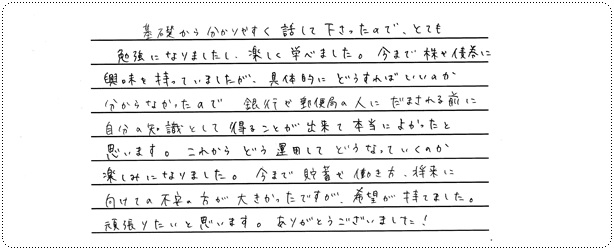 基礎から分かりやすく話して下さったので、とても
勉強になりましたし、楽しく学べました。今まで株や債券に
興味を持っていましたが、具体的にどうすればいいのか
分からなかったので 銀行や郵便局の人にだまされる前に
自分の知識として得ることが出来て本当によかったと
思います。これからどう運用してどうなっていくのか
楽しみになりました。今まで貯蓄や働き方、将来に
向けての不安の方が大きかったですが、希望が持てました。
頑張りたいと思います。ありがとうございました！